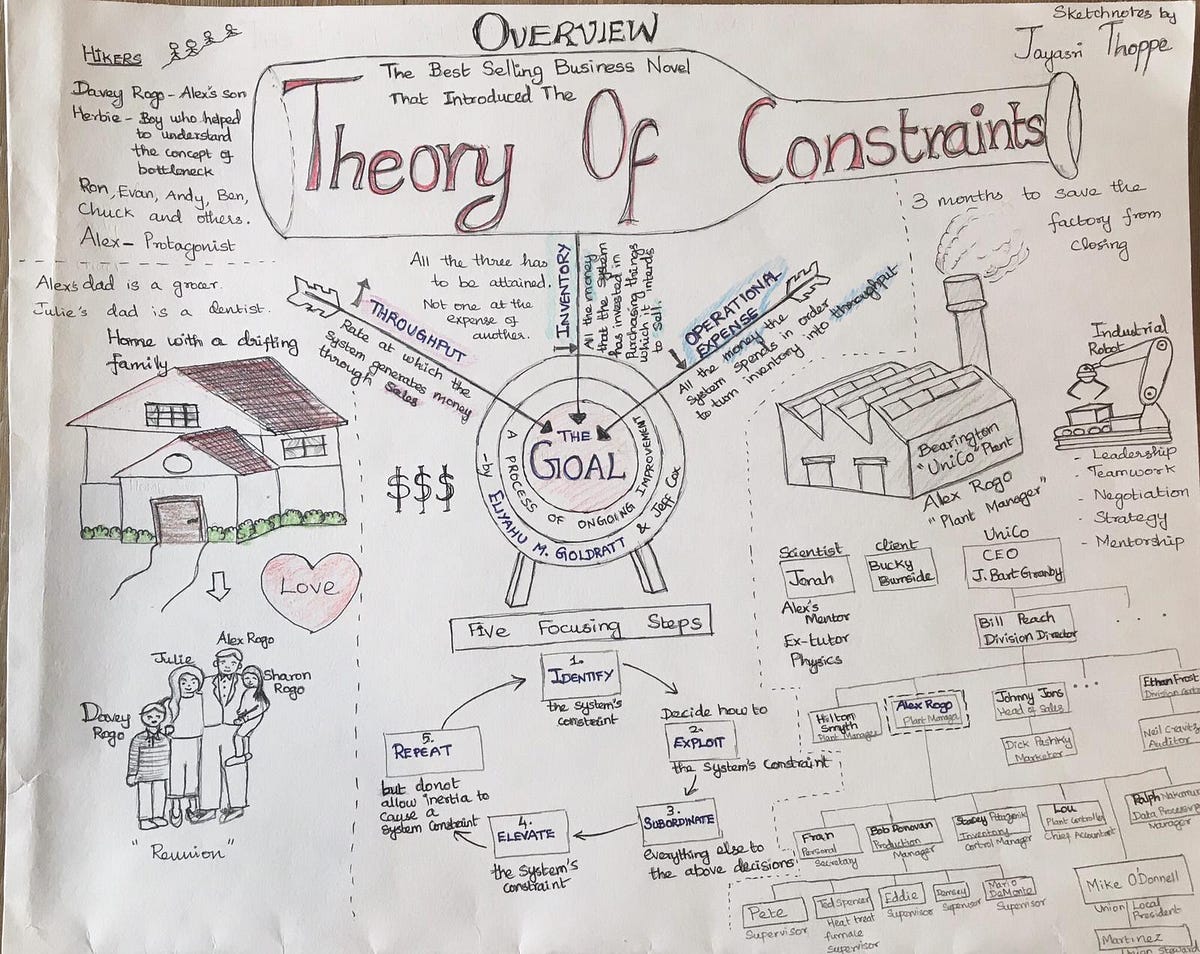 OVERVIEW
Sketchnotes by
Jayasri Thoppe
The Best Selling Business Novel
That Introduced The
Theory Of Constraints
HIKERS
Davey Rogo - Alex's son
Herbie - Boy who helped
to understand
the concept of
bottleneck
Ron, Evan, Andy, Ben,
Chuck and others.
Alex - Protagonist
Alex's dad is a grocer.
Julie's dad is a dentist.
Home with a drifting
family
Love
Alex Rogo
Julie
Sharon
Rogo
Davey
Rogo
"Reunion"
All the three has
to be attained.
Not one at the
expense of
another.
THROUGHPUT
Rate at which the
System generates money
through sales
INVENTORY
All the money
that the system
has invested in
Purchasing things
which it intends
to sell.
OPERATIONAL
EXPENSE
All the money the
system spends in order
to turn inventory into throughput
$$$
THE
GOAL
A PROCESS OF ONGOING IMPROVEMENT
- by ELIYAHU M. GOLDRATT & Jeff Cox
Five Focusing Steps
1.
IDENTIFY
the system's
constraint
Decide how to
2.
EXPLOIT
the system's Constraint
3.
SUBORDINATE
everything else to
the above decisions
4.
ELEVATE
the system's
constraint
5.
REPEAT
but donot
allow inertia to
cause a
system constraint
3 months to save the
factory from
closing
Industrial
Robot
Bearington
"UniCo" Plant
Alex Rogo
"Plant Manager"
- Leadership
- Teamwork
- Negotiation
- Strategy
- Mentorship
Scientist
Jonah
Alex's
Mentor
Ex-tutor
Physics
Client
Bucky
Burnside
UniCo
CEO
J. Bart Granby
Bill Peach
Division Director
Hilton
Smyth
Plant Manager
Alex Rogo
Plant Manager
Johnny Jons
Head of Sales
Dick Pashky
Marketer
Ethan Frost
Division
Neil Cravitz
Auditor
Fran
Personal
Secretary
Bob Donovan
Production
Manager
Stacey
Inventory
Control Manager
Lou
Plant Controller
Chief Accountant
Ralph Nakamura
Data Processing
Manager
Pete
Supervisor
Ted Spencer
Heat treat
furnale
Supervisor
Eddie
Supervisor
Dempsey
Supervisor
Mario
DeMonte
Supervisor
Mike O'Donnell
Union Local
President
Martinez
Union Steward